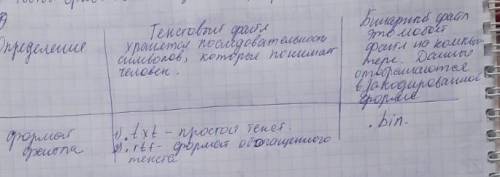 Определение
Текстовый файл
хранится последовательность
символов, которые понимает
человек.
Бинарный файл
это любой
файл на компью
тере. Данные
отображаются
в закодированной
форме
формат
файла
1). txt - простой текст.
2). rtf - формат обогащенного
текста
.bin.